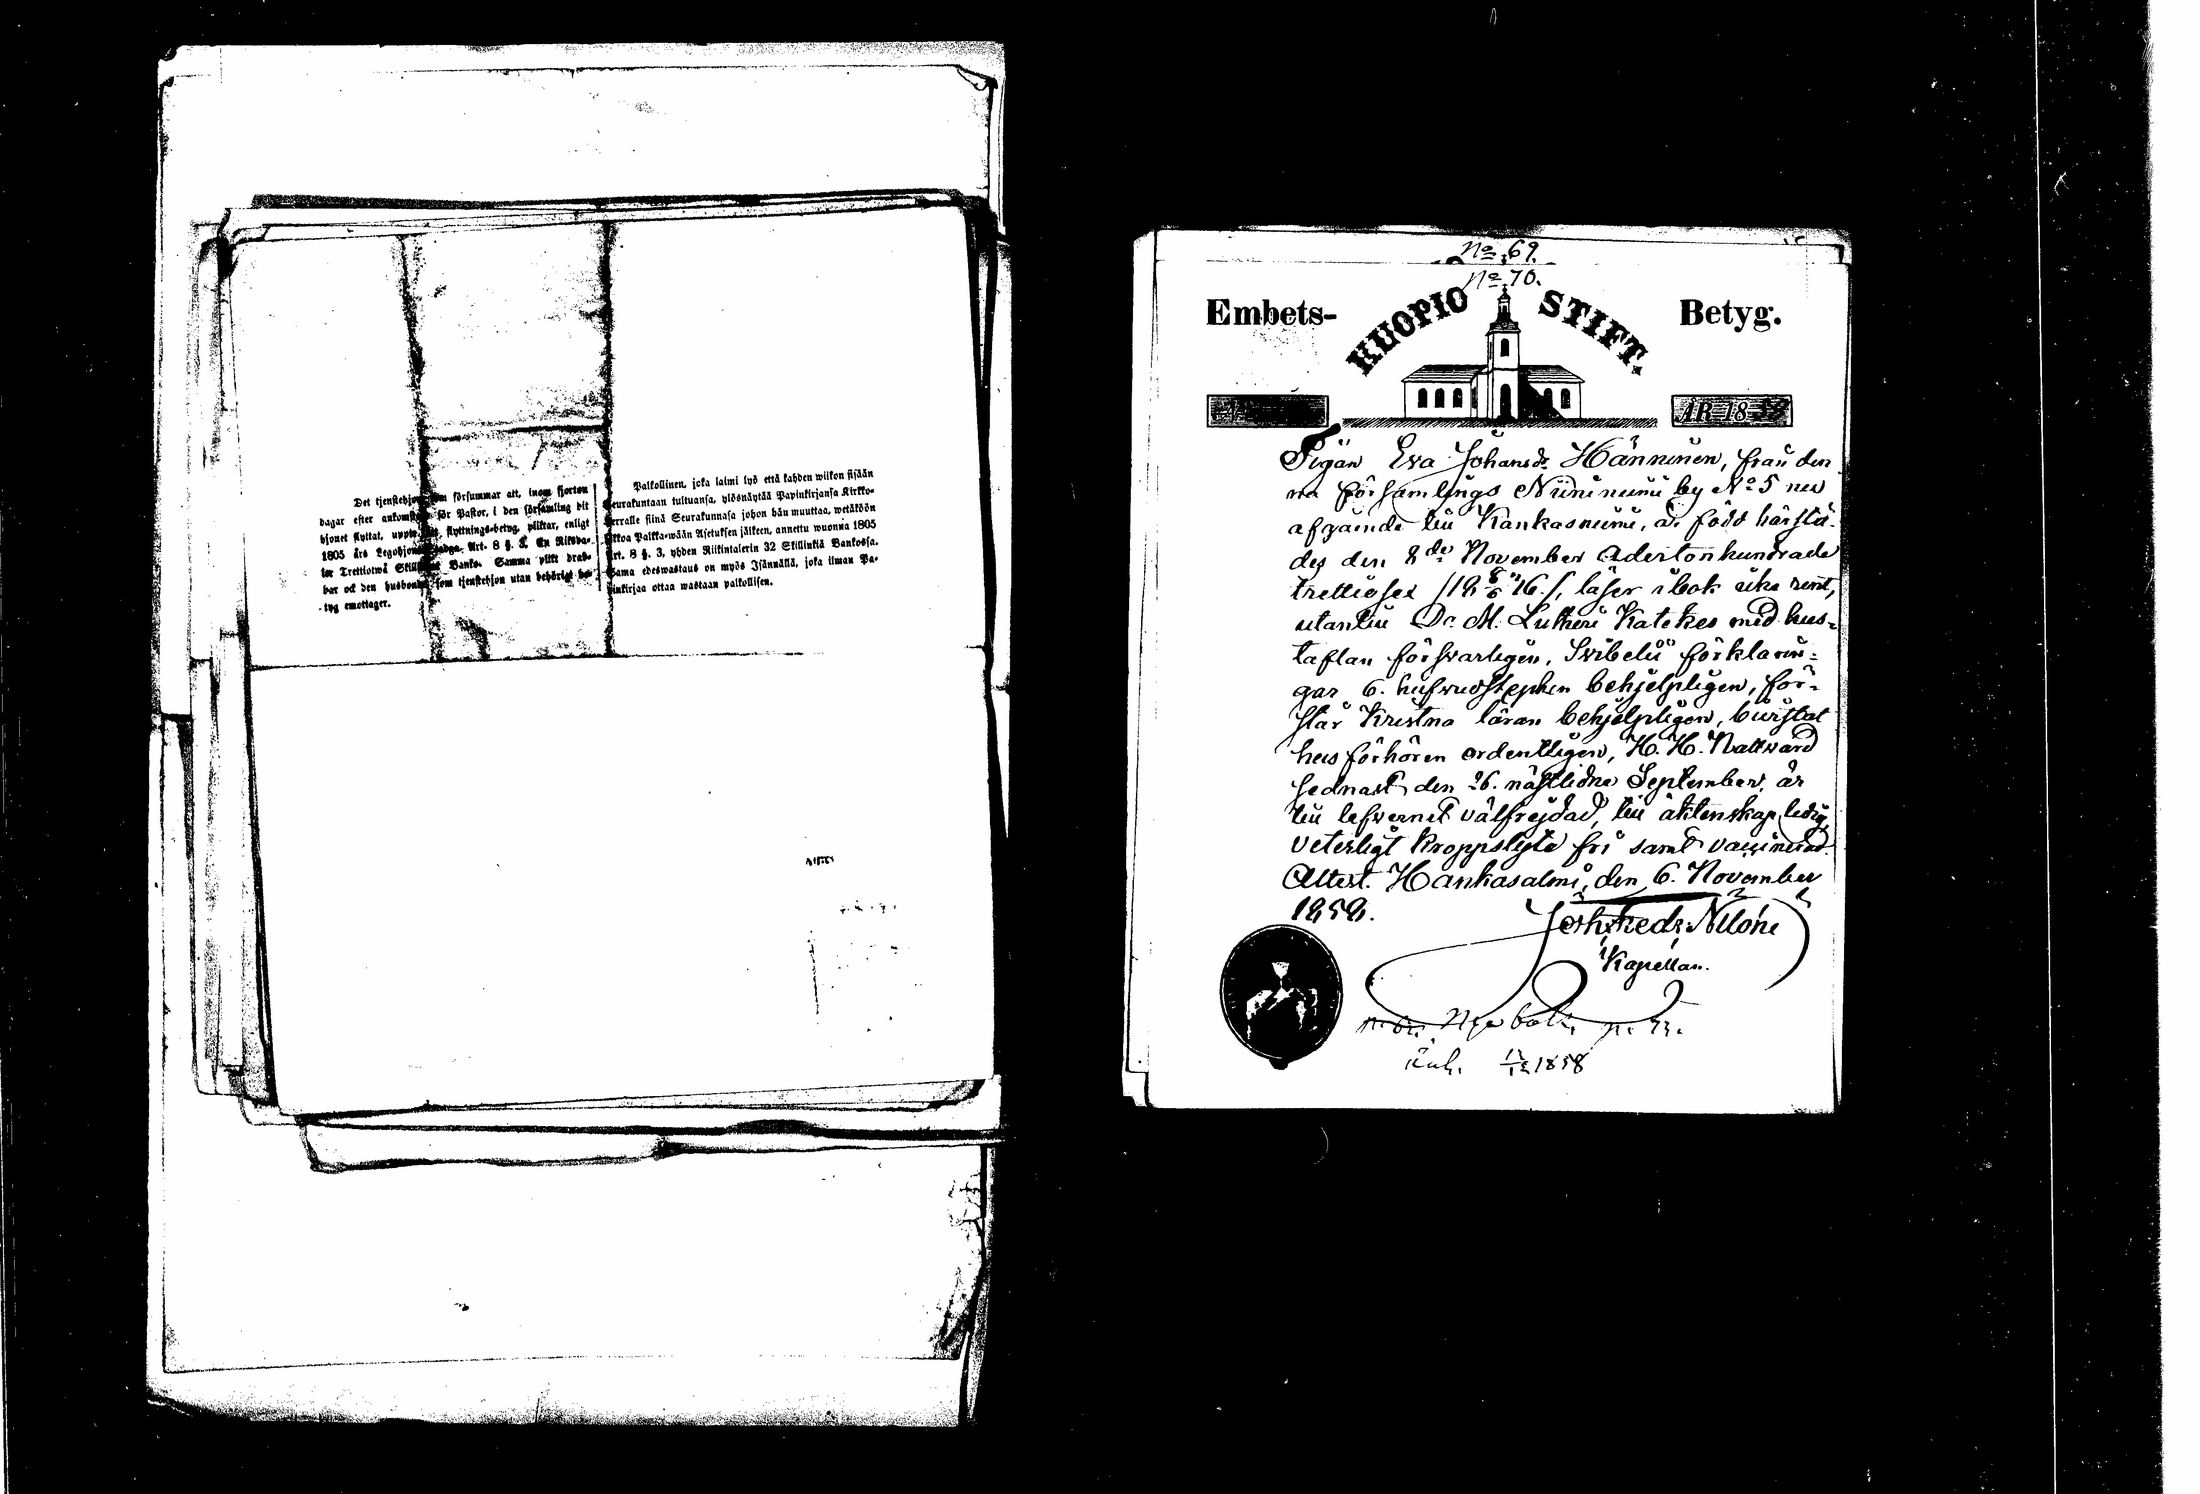 Det tjenstehjon som försummar att, inom fjorton
dagar efter ankomsten för Pastor, i den församling dit
hjonet flyttat, uppte flyttnings-betyg, pliktar, enligt
1805 års Legohjons Art. 8 §. 3, En Riksda-
ler Trettiotwå Skill Banko. Samma plikt drab-
bar ock den husbonde som tjenstehjon utan behörigt be-
tyg emottager.
Palkollinen, joka laimi lyö että kahden wiikon sisään
Seurakuntaan tultuansa, ylösnäytää Papinkirjansa Kirkko-
herralle siinä Seurakunnasa johon hän muuttaa, wetäköön
sakkoa Palkka-wään Asetuksen jälkeen, annettu wuonna 1805
Art. 8 §. 3, yhden Riikintalerin 32 Skillinkiä Bankossa.
Sama edeswastaus on myös Isännällä, joka ilman Pa-
pinkirjaa ottaa wastaan palkollisen.
No 69.
No 70.
Embets- KUOPIO STIFT. Betyg.
ÅR 1858
Pigan Eva Johansdr Hänninen, från den
na församlings Niininiemi by No 5 nu
afgående till Kankasniemi, är född härstä-
des den 8de November Adertonhundrade
trettiosex /18 16./, läser i bok icke rent,
utantill Dr M. Lutheri Katekes med hus-
taflan försvarligen, Svibelii förklarin-
gar 6. hufvudstycken behjelpligen, för-
står Kristna läran behjelpligen, bivistat
husförhören ordentligen, H. H. Nattvard
sednast den 26. nästlidne September, är
till lefvernet välfrejdad, till äktenskap ledig,
veterligt kroppslyte fri samt vaccinerad.
Attest. Hankasalmi, den 6. November
1858.
Kapellan.
1858